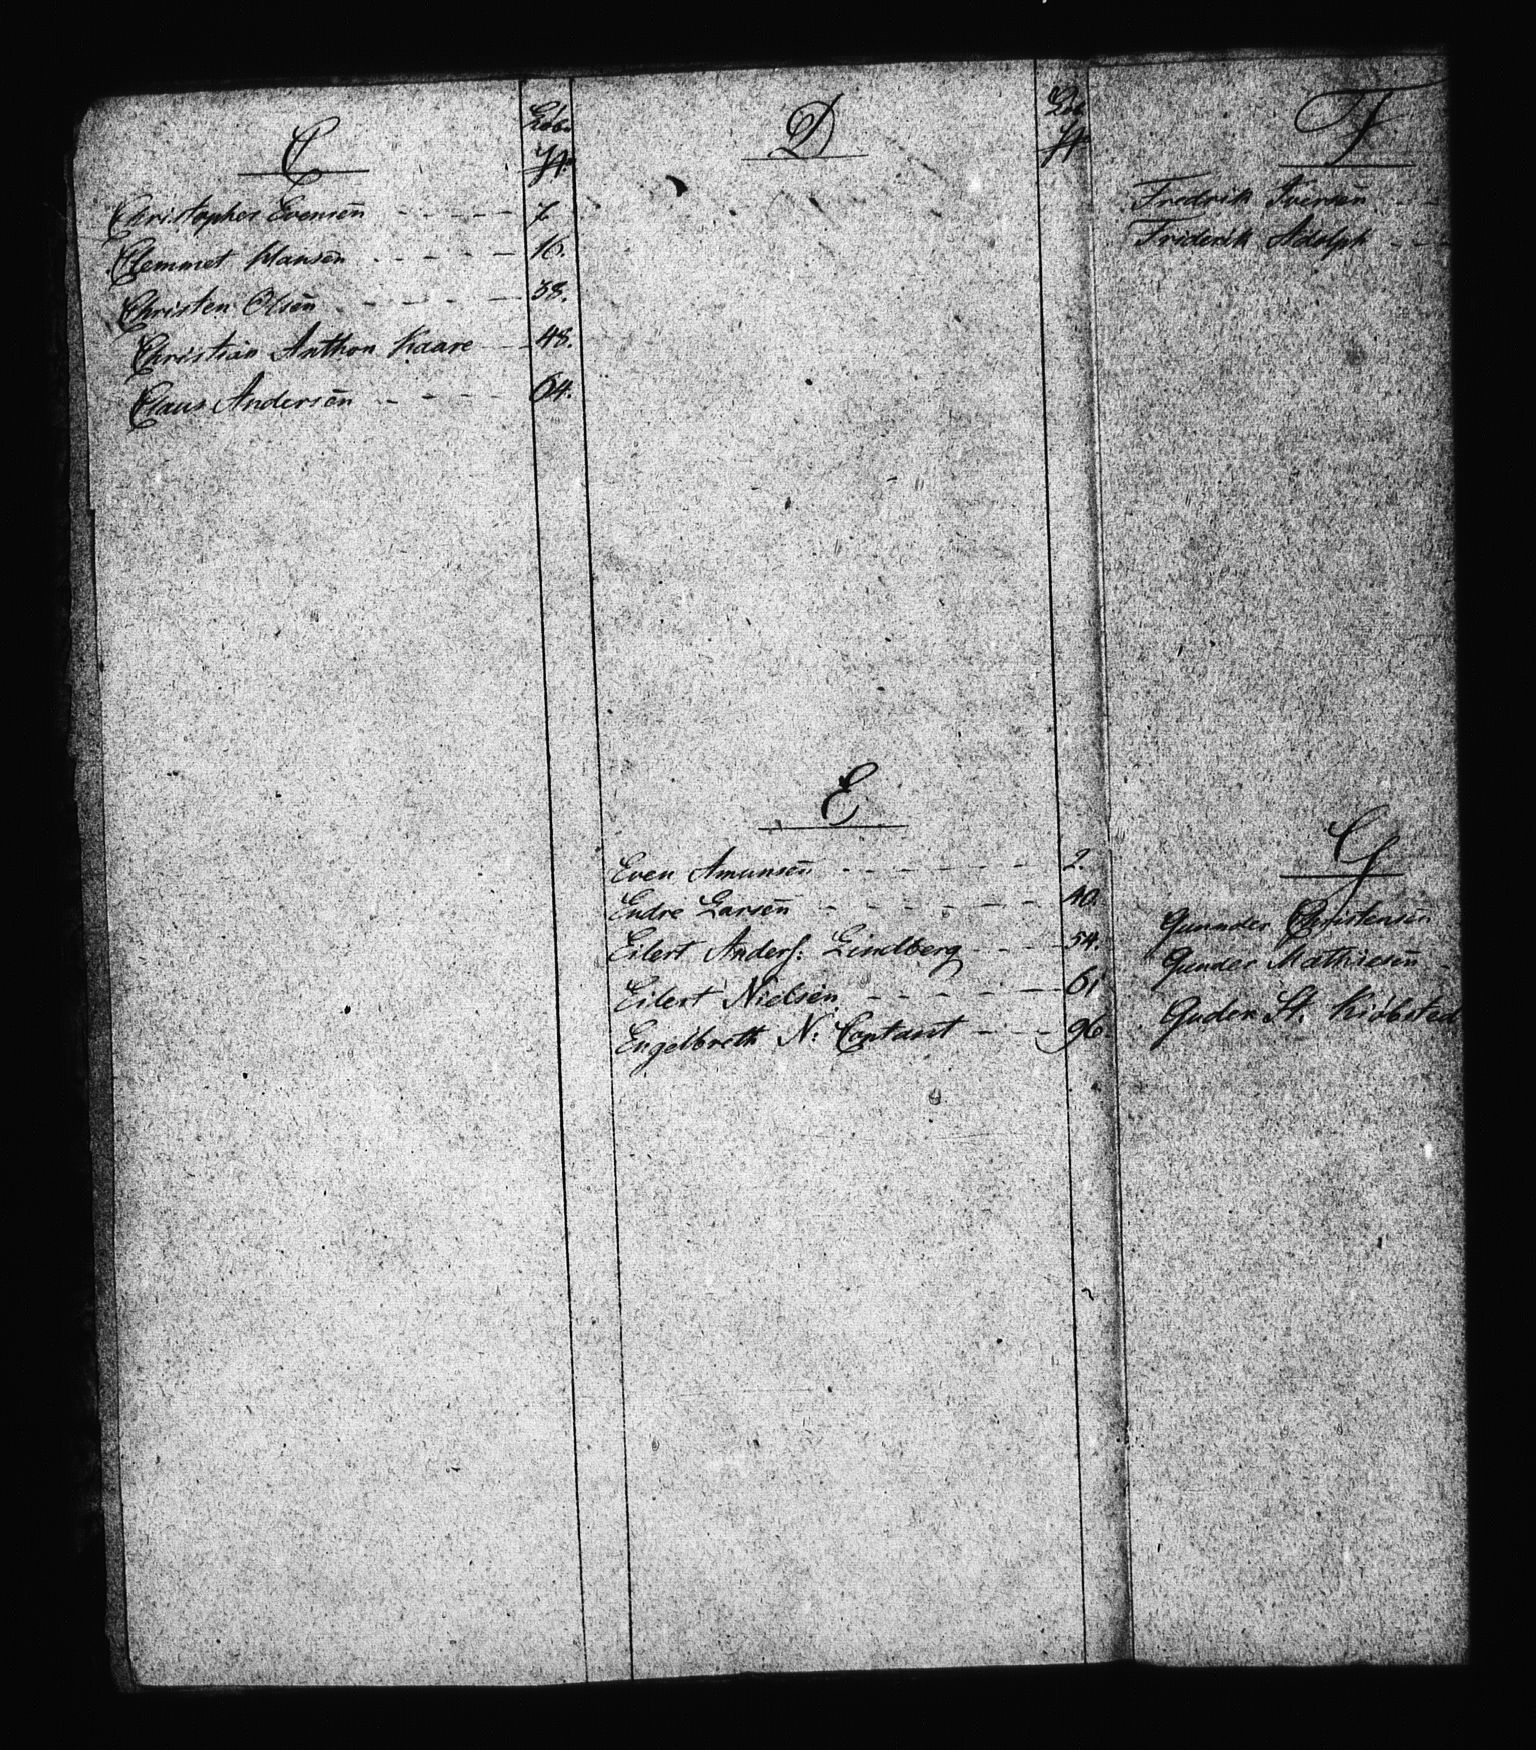 C
Løb.
№
Christopher Evensen̄ 7.
Clemmet Hansen̄ 16.
Christen Olsen̄ 38.
Christian Anthon Kaare 48.
Claus Andersen̄ 64.
D
Løb.
№
E
Even Amunsen̄ 2.
Endre Larsen̄ 40.
Eilert Anders: Lindberg 54.
Eilert Nielsen 61
Engelbreth N: Contant 96.
F
Fredrik Iversen̄
Friderik Adolph
G
Gunnder Christensen̄
Gunder Mathiesen̄
Guder St. Kiöbsted